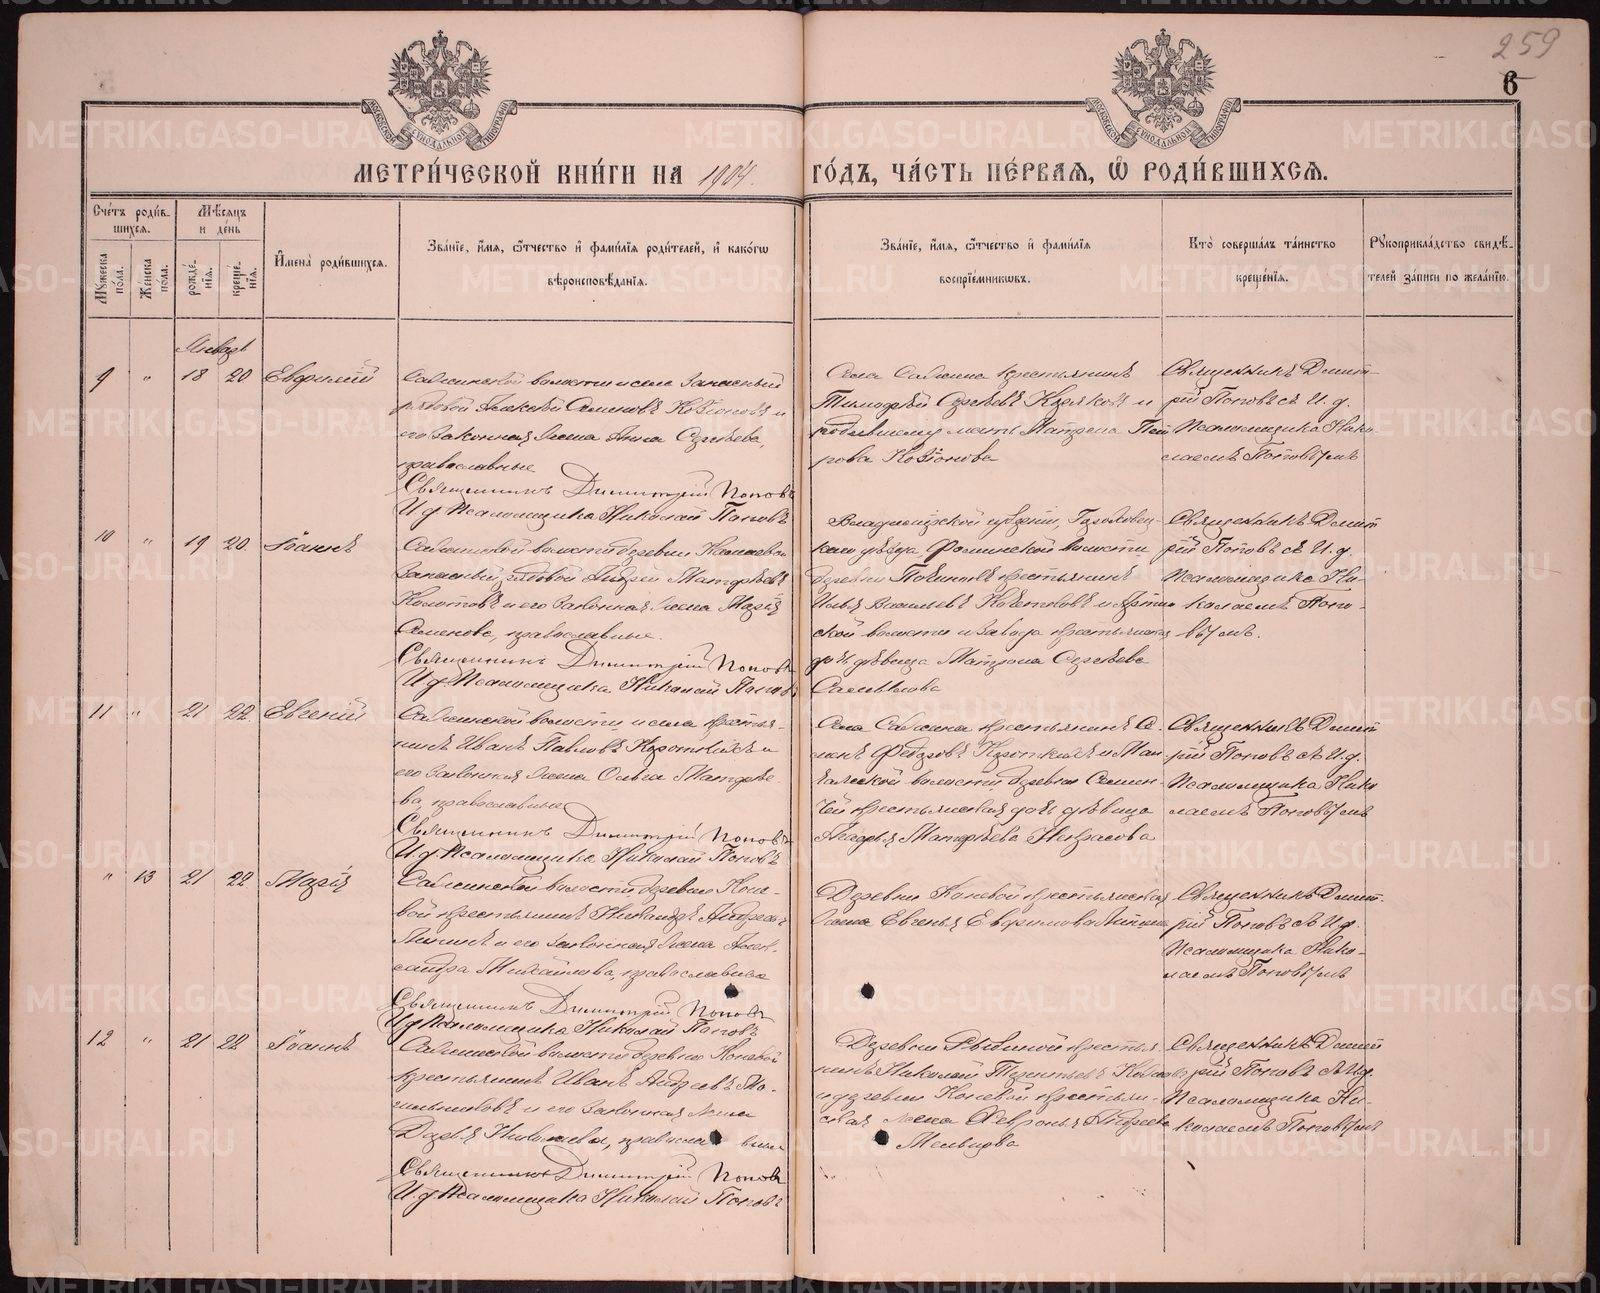 259
6
МЕТРИ́ЧЕСКОЙ КНИ́ГИ НА 1904 ГО́ДЪ, ЧА́СТЬ ПЕ́РВАѦ, Ѽ РОДИ́ВШИХСѦ.
Сче́тъ роди́вшихсѧ.
Мꙋ́жеска по́ла.
Же́нска по́ла.
Мѣ́сѧцъ и де́нь
рожде́нїѧ.
креще́нїѧ.
И҆мена̀ роди́вшихсѧ.
Зва́нїе, и҆́мѧ, ѻ҆́тчество и҆ фами́лїѧ роди́телей, и҆ како́гѡ
вѣроисповѣ́данїѧ.
Зва́нїе, и҆́мѧ, ѻ҆́тчество и҆ фами́лїѧ
воспрїе́мникѡвъ.
Кто̀ соверша́лъ та́инство
креще́нїѧ.
Рꙋкоприкла́дство свидѣ́-
телей за́писи по жела́нїю.
Январь
9 " 18 20 Евфимій
Сажинской волости и села запасный
рядовой Алексѣй Семеновъ и
его законная жена Анна Сергѣева,
православные
Священникъ Димитрій Поповъ
И. д. Псаломщика Николай Поповъ
Села Сажина крестьянинъ
Тимофѣй Сергѣевъ и
мать Матрена
Священникъ Димит-
рій Поповъ съ И. д.
Псаломщика Нико-
лаемъ Поповымъ
10 " 19 20 Іоаннъ
Сажинской волости деревни
запасный рядовой Андрей Матфѣевъ
и его законная жена Марія
Семенова, православные.
Священникъ Димитрій Поповъ
И. д. Псаломщика Николай Поповъ
Владимірской губерніи, Гороховец-
каго уѣзда Фоминской волости
деревни крестьянинъ
Илья Васильевъ и Артин-
ской волости и завода крестьянская
дочь дѣвица Матрона Сергѣева
Священникъ Димит-
рій Поповъ съ И. д.
Псаломщика Ни-
колаемъ Попо-
вымъ.
11 " 21 22 Евгеній
Сажинской волости и села крестья-
нинъ Иванъ Павловъ Короткихъ и
его законная жена Ольга Матфѣе-
ва, православные
Священникъ Димитрій Поповъ
И. д. Псаломщика Николай Поповъ
Села Сажина крестьянинъ Се-
менъ Федоровъ Короткихъ и
волости деревни
крестьянская дочь дѣвица
Матфѣева Некрасова
Священникъ Димит-
рій Поповъ съ И. д.
Псаломщика Нико-
лаемъ Поповымъ
" 13 21 22 Марія
Сажинской волости деревни Коне-
вой крестьянинъ Никандръ Андреевъ
и его законная жена Алек-
сандра Михайлова, православные
Священникъ Димитрій Поповъ
И. д. Псаломщика Николай Поповъ
Деревни Коневой крестьянская
жена Евгенья Евфимова
Священникъ Димит-
рій Поповъ съ И. д.
Псаломщика Нико-
лаемъ Поповымъ
12 " 21 22 Іоаннъ
Сажинской волости деревни Коневой
крестьянинъ Иванъ Андреевъ
и его законная жена
Дарья, православные
Священникъ Димитрій Поповъ
И. д. Псаломщика Николай Поповъ
Деревни крестья-
нинъ Николай Терентьевъ
и деревни Коневой крестьян-
ская жена Февронья Андреева
Священникъ Димит-
рій Поповъ съ И. д.
Псаломщика Ни-
колаемъ Поповымъ
METRIKI.GASO-URAL.RU